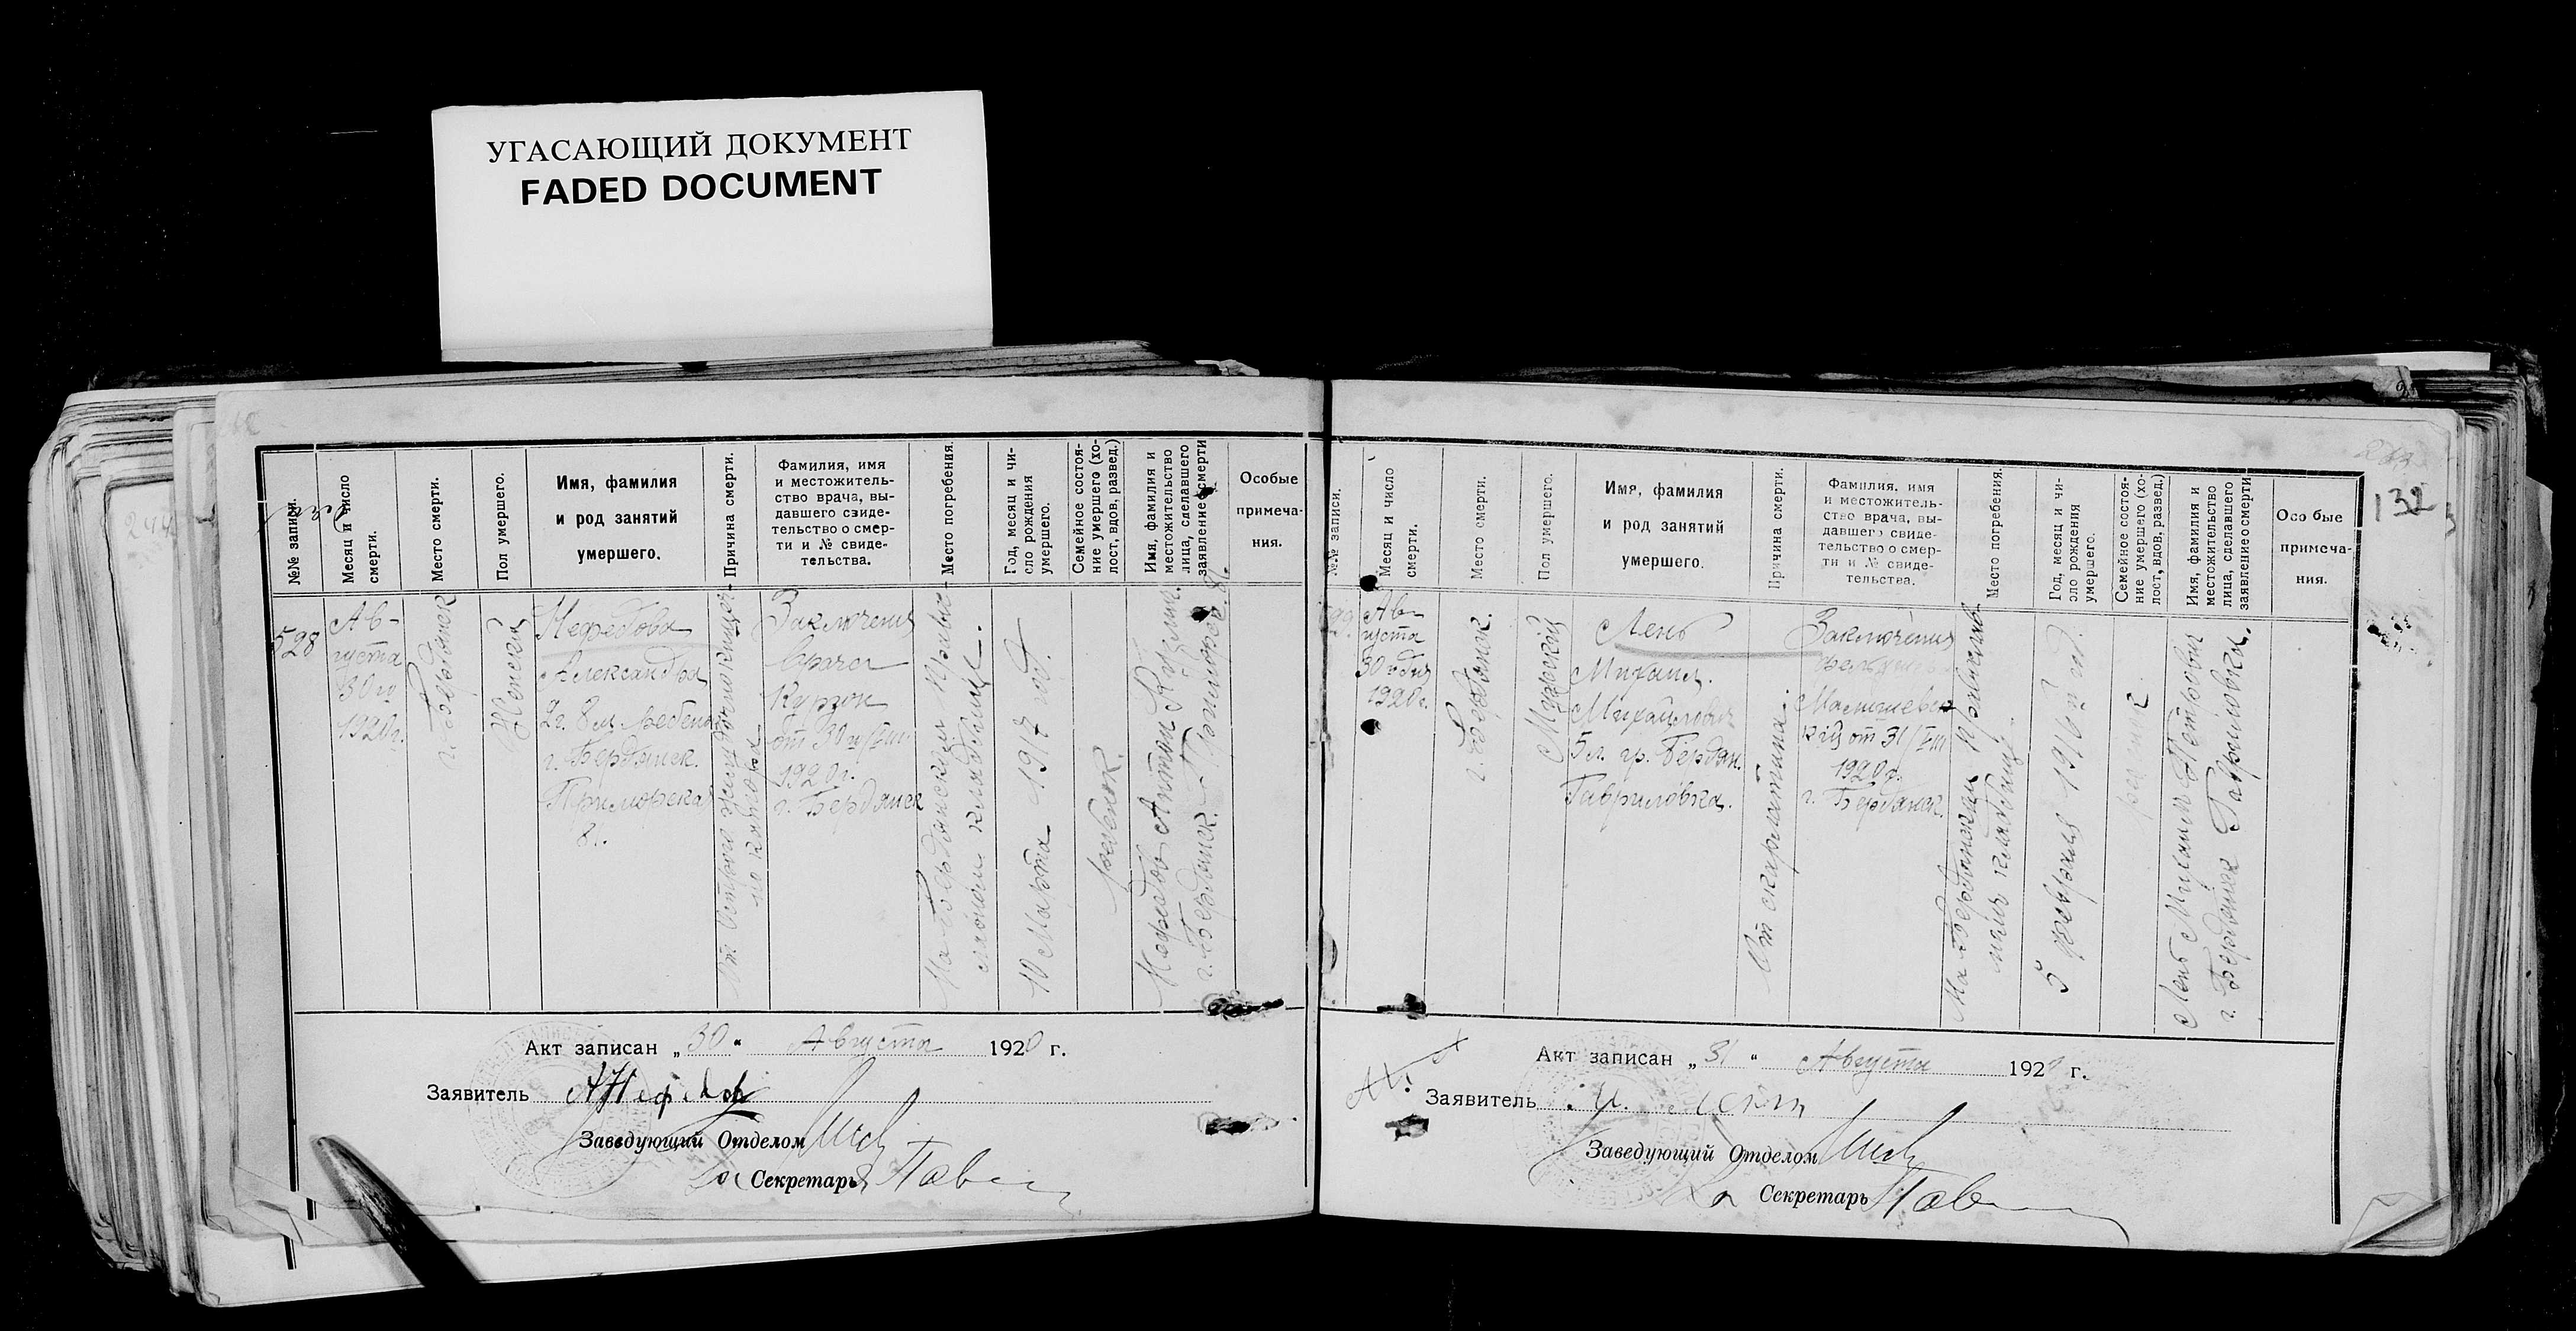 УГАСАЮЩИЙ ДОКУМЕНТ
FADED DOCUMENT
№№ записи.
Месяц и число
смерти.
Место смерти.
Пол умершего.
Имя, фамилия
и род занятий
умершего.
Причина смерти.
Фамилия, имя
и местожитель-
ство врача, вы-
давшего свиде-
тельство о смер-
ти и № свиде-
тельства.
Место погребения.
Год, месяц и чи-
сло рождения
умершего.
Семейное состоя-
ние умершего (хо-
лост, вдов, развед.)
Имя, фамилия и
местожительство
лица, сделавшего
заявление о смерти
Особые
примеча-
ния.
528
Ав-
густа
30го
1920г.
г. Бердянск
Женский
Нефедова
Александра
2г. 8м. ребенок
г. Бердянск.
Приморская
8.
От острого желудочно кишеч-
но катара
Заключения
врача
Курзон
от 30го/VIII
1920г.
г. Бердянск
На Бердянском Правос-
лавном кладбище.
10 Марта 1917 год.
ребенок.
Нефедов Антон Козьмич.
г. Бердянск. Приморская 8.
Акт записан „30“ Августа 1920 г.
Заявитель АНефедов
Заведующий Отделом
За Секретаря
132
№№ записи.
Месяц и число
смерти.
Место смерти.
Пол умершего.
Имя, фамилия
и род занятий
умершего.
Причина смерти.
Фамилия, имя
и местожитель-
ство врача, вы-
давшего свиде-
тельство о смер-
ти и № свиде-
тельства.
Место погребения.
Год, месяц и чи-
сло рождения
умершего.
Семейное состоя-
ние умершего (хо-
лост, вдов, развед.)
Имя, фамилия и
местожительство
лица, сделавшего
заявление о смерти
Особые
примеча-
ния.
Ав-
густа
30 дня
1920г.
г. Бердянск.
Мужской
Лень
Михаил.
Михайлович
5л. гр. Бердян.
Гавриловка.
От скарлатины.
Заключения
от 31/VIII
1920г.
г. Бердянск.
На Бердянском Православ-
ном кладбище
5 февраля 1916 год.
ребенок
Лень Михаил Петрович
г. Бердянск Гавриловка.
Акт записан „31“ Августа 1920 г.
Заявитель М. Лень
Заведующий Отделом
За Секретарь